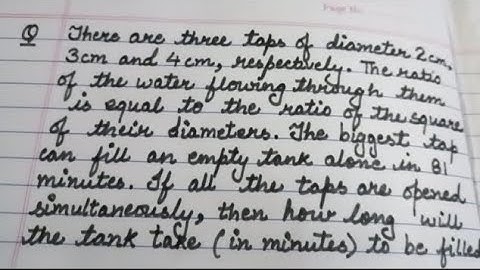 Page No.
Q There are three taps of diameter 2cm,
3cm and 4cm, respectively. The ratio
of the water flowing through them
is equal to the ratio of the square
of their diameters. The biggest tap
can fill an empty tank alone in 81
minutes. If all the taps are opened
simultaneously, then how long will
the tank take (in minutes) to be filled